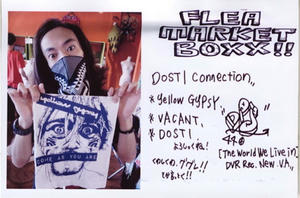 FLEA
MARKET
BOXX!!
DOSTI Connection,,
* Yellow GYPSY,
* VACANT,
* DOSTI,
よろしくね!
yellow gypsy
COME AS YOU ARE
440
[The World We Live in]
DVR Rec. New VA,,